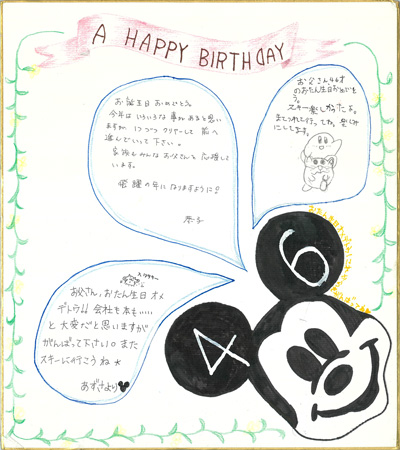 A HAPPY BIRTHDAY
お誕生日おめでとう。
今年はいろいろな事があると思い
ますが 1つ1つクリヤーして前へ
進んでいって下さい。
家族もみんなお父さんを応援して
います。
飛躍の年になりますように♡
お父さん46才
のおたん生日おめでと
う。
スキー楽しかったよ。
またつれて行ってね。楽しみ
にしてます。
お父さん、おたん生日オメ
デトウ!! 会社も本も.....
と大変だと思いますが
がんばって下さい。また
スキーに行こうね★
あずさより
4 6